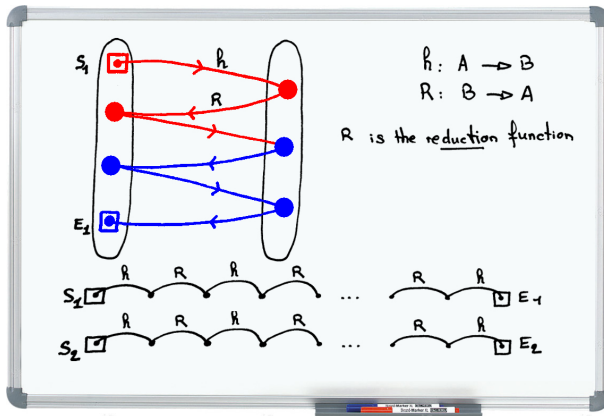 S1
h
R
E1
h: A → B
R: B → A
R is the reduction function
S1 h R h R ... R h E1
S2 h R h R ... R h E2